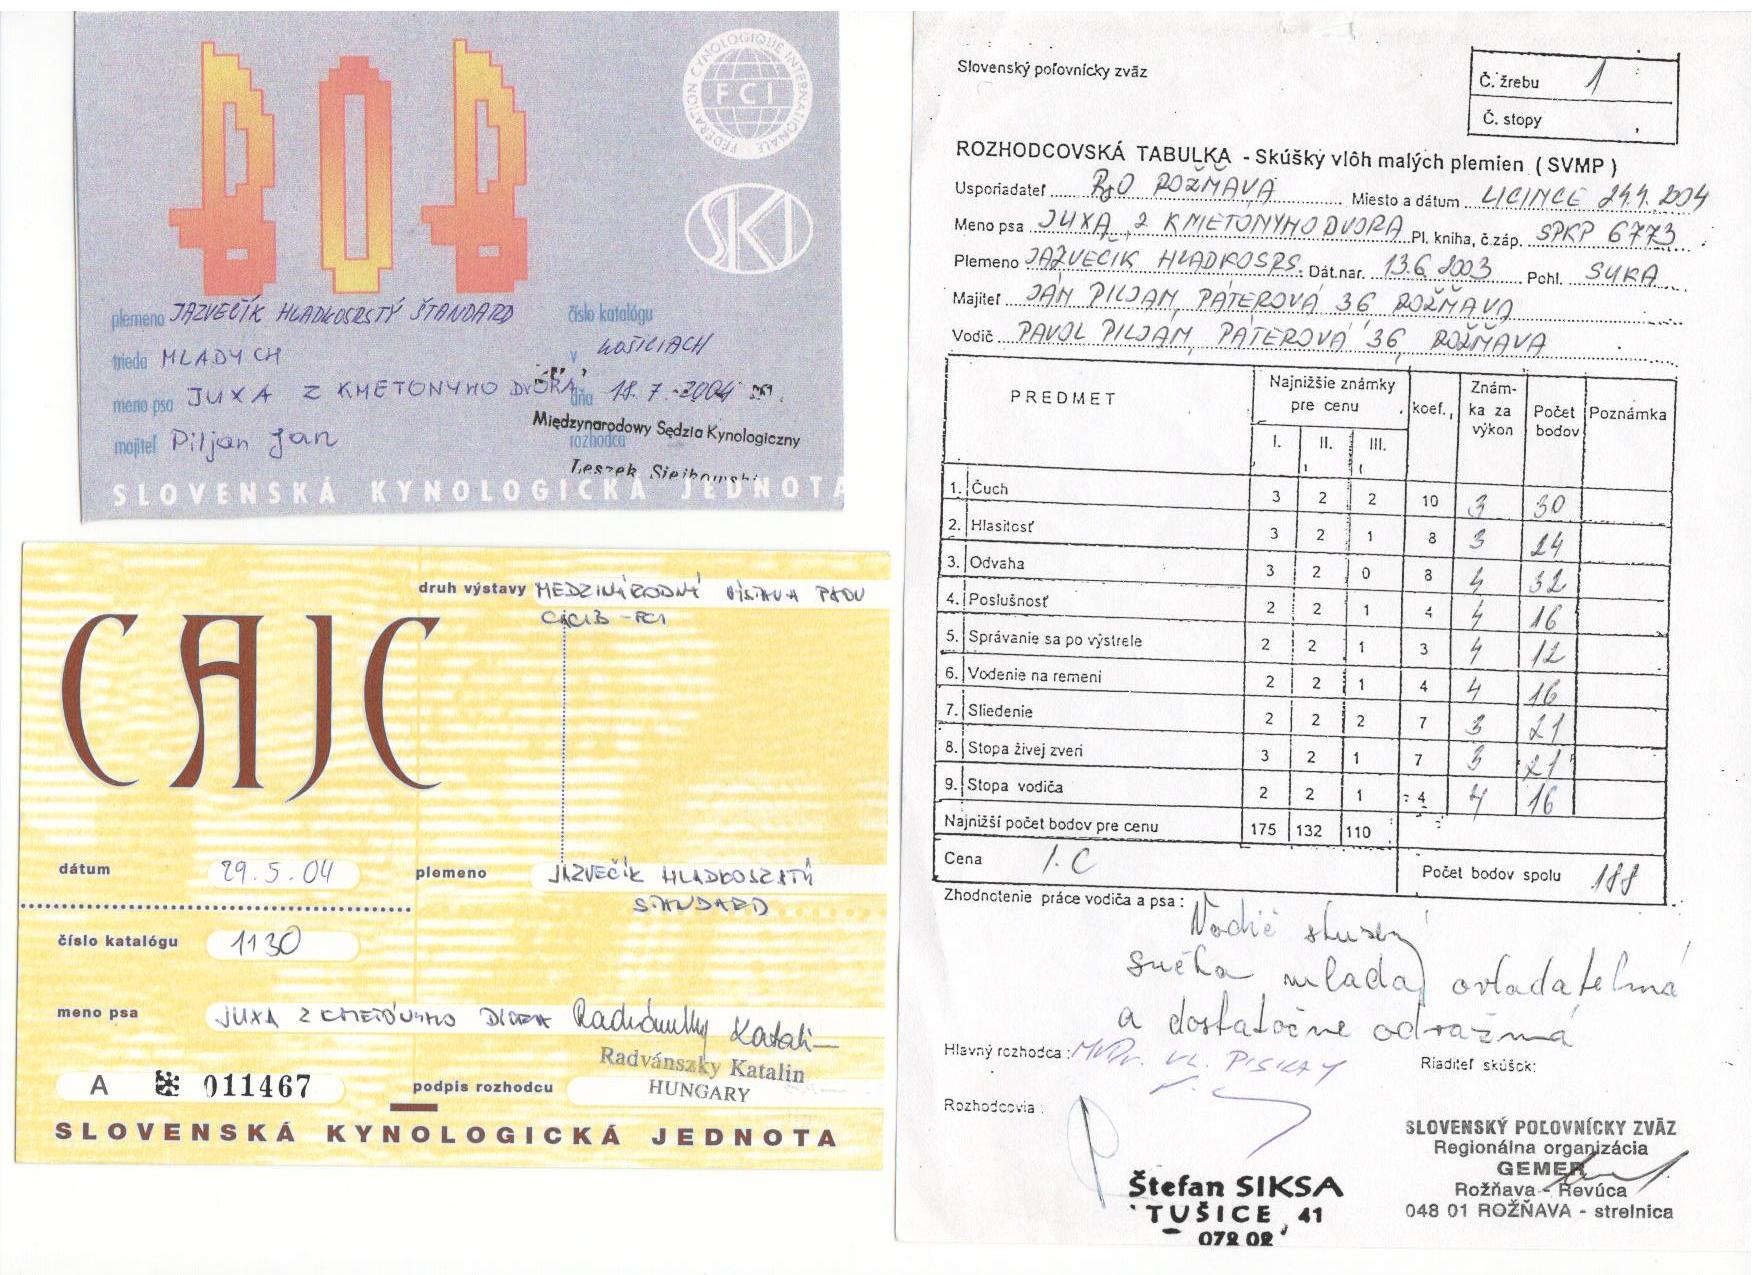 BOB
FEDERATION CYNOLOGIQUE INTERNATIONALE
FCI
SKJ
plemeno JAZVEČÍK HLADKOSRSTÝ ŠTANDARD číslo katalógu
trieda MLADYCH v KOŠICIACH
meno psa JUXA Z KMETONYHO DVORA dňa 18.7.2004
majiteľ Piljan Jan rozhodca
Międzynarodowy Sędzia Kynologiczny
Leszek
SLOVENSKÁ KYNOLOGICKÁ JEDNOTA
CAJC
druh výstavy MEDZINÁRODNÁ VÝSTAVA PSOV
CACIB - FCI
dátum 29.5.04 plemeno JAZVEČÍK HLADKOSRSTÝ
ŠTANDARD
číslo katalógu 1130
meno psa JUXA Z KMETÓNYHO DVORA Radvánszky Katalin
Radvánszky Katalin
HUNGARY
A 011467 podpis rozhodcu
SLOVENSKÁ KYNOLOGICKÁ JEDNOTA
Slovenský poľovnícky zväz
Č. žrebu 1
Č. stopy
ROZHODCOVSKÁ TABULKA - Skúšky vlôh malých plemien (SVMP)
Usporiadateľ RgO ROŽŇAVA Miesto a dátum LICINCE 24.4.2004
Meno psa JUXA Z KMETÓNYHO DVORA Pl. kniha, č.záp. SPKP 6773
Plemeno JAZVEČÍK HLADKOSRS. Dát.nar. 13.6.2003 Pohl. SUKA
Majiteľ JÁN PILJAN, PÁTEROVÁ 36 ROŽŇAVA
Vodič PAVOL PILJAN, PÁTEROVÁ 36, ROŽŇAVA
PREDMET Najnižšie známky pre cenu koef. Znám-ka za výkon Počet bodov Poznámka
I. II. III.
1. Čuch 3 2 2 10 3 30
2. Hlasitosť 3 2 1 8 3 24
3. Odvaha 3 2 0 8 4 32
4. Poslušnosť 2 2 1 4 4 16
5. Správanie sa po výstrele 2 2 1 3 4 12
6. Vodenie na remeni 2 2 1 4 4 16
7. Sliedenie 2 2 2 7 3 21
8. Stopa živej zveri 3 2 1 7 3 21
9. Stopa vodiča 2 2 1 4 4 16
Najnižší počet bodov pre cenu 175 132 110
Cena I. C Počet bodov spolu 188
Zhodnotenie práce vodiča a psa: Vodič slušný
sučka mladá, ovladateľná
a dostatočne odvážná
Hlavný rozhodca: MVDr. VL. PISKAY Riaditeľ skúšok:
Rozhodcovia:
Štefan SIKSA
TUŠICE 41
072 02
SLOVENSKÝ POĽOVNÍCKY ZVÄZ
Regionálna organizácia
GEMER
Rožňava - Revúca
048 01 ROŽŇAVA - strelnica